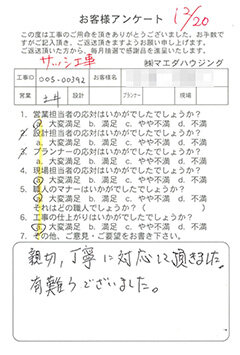 お客様アンケート 12/20
この度は工事のご用命を頂きありがとうございます。お手数で
すがご記入頂き、ご返送頂きますようお願い申し上げます。
ご返送頂いた方から、毎月抽選で感謝品を進呈いたします。
サッシ工事 ㈱マエダハウジング
工事ID 005-00392 お客様名
営業 土井 設計 プランナー 現場
1. 営業担当者の応対はいかがでしたでしょうか?
a. 大変満足 b. 満足 c. やや不満 d. 不満
2. 設計担当者の応対はいかがでしたでしょうか?
a. 大変満足 b. 満足 c. やや不満 d. 不満
3. プランナーの応対はいかがでしたでしょうか?
a. 大変満足 b. 満足 c. やや不満 d. 不満
4. 現場担当者の応対はいかがでしたでしょうか?
a. 大変満足 b. 満足 c. やや不満 d. 不満
5. 職人のマナーはいかがでしたでしょうか?
a. 大変満足 b. 満足 c. やや不満 d. 不満
それはどの職人でしょうか?( )
6. 工事の仕上がりはいかがでしたでしょうか?
a. 大変満足 b. 満足 c. やや不満 d. 不満
7. その他、ご意見・ご要望をお書き下さい。
親切、丁寧に対応して頂きました。
有難うございました。